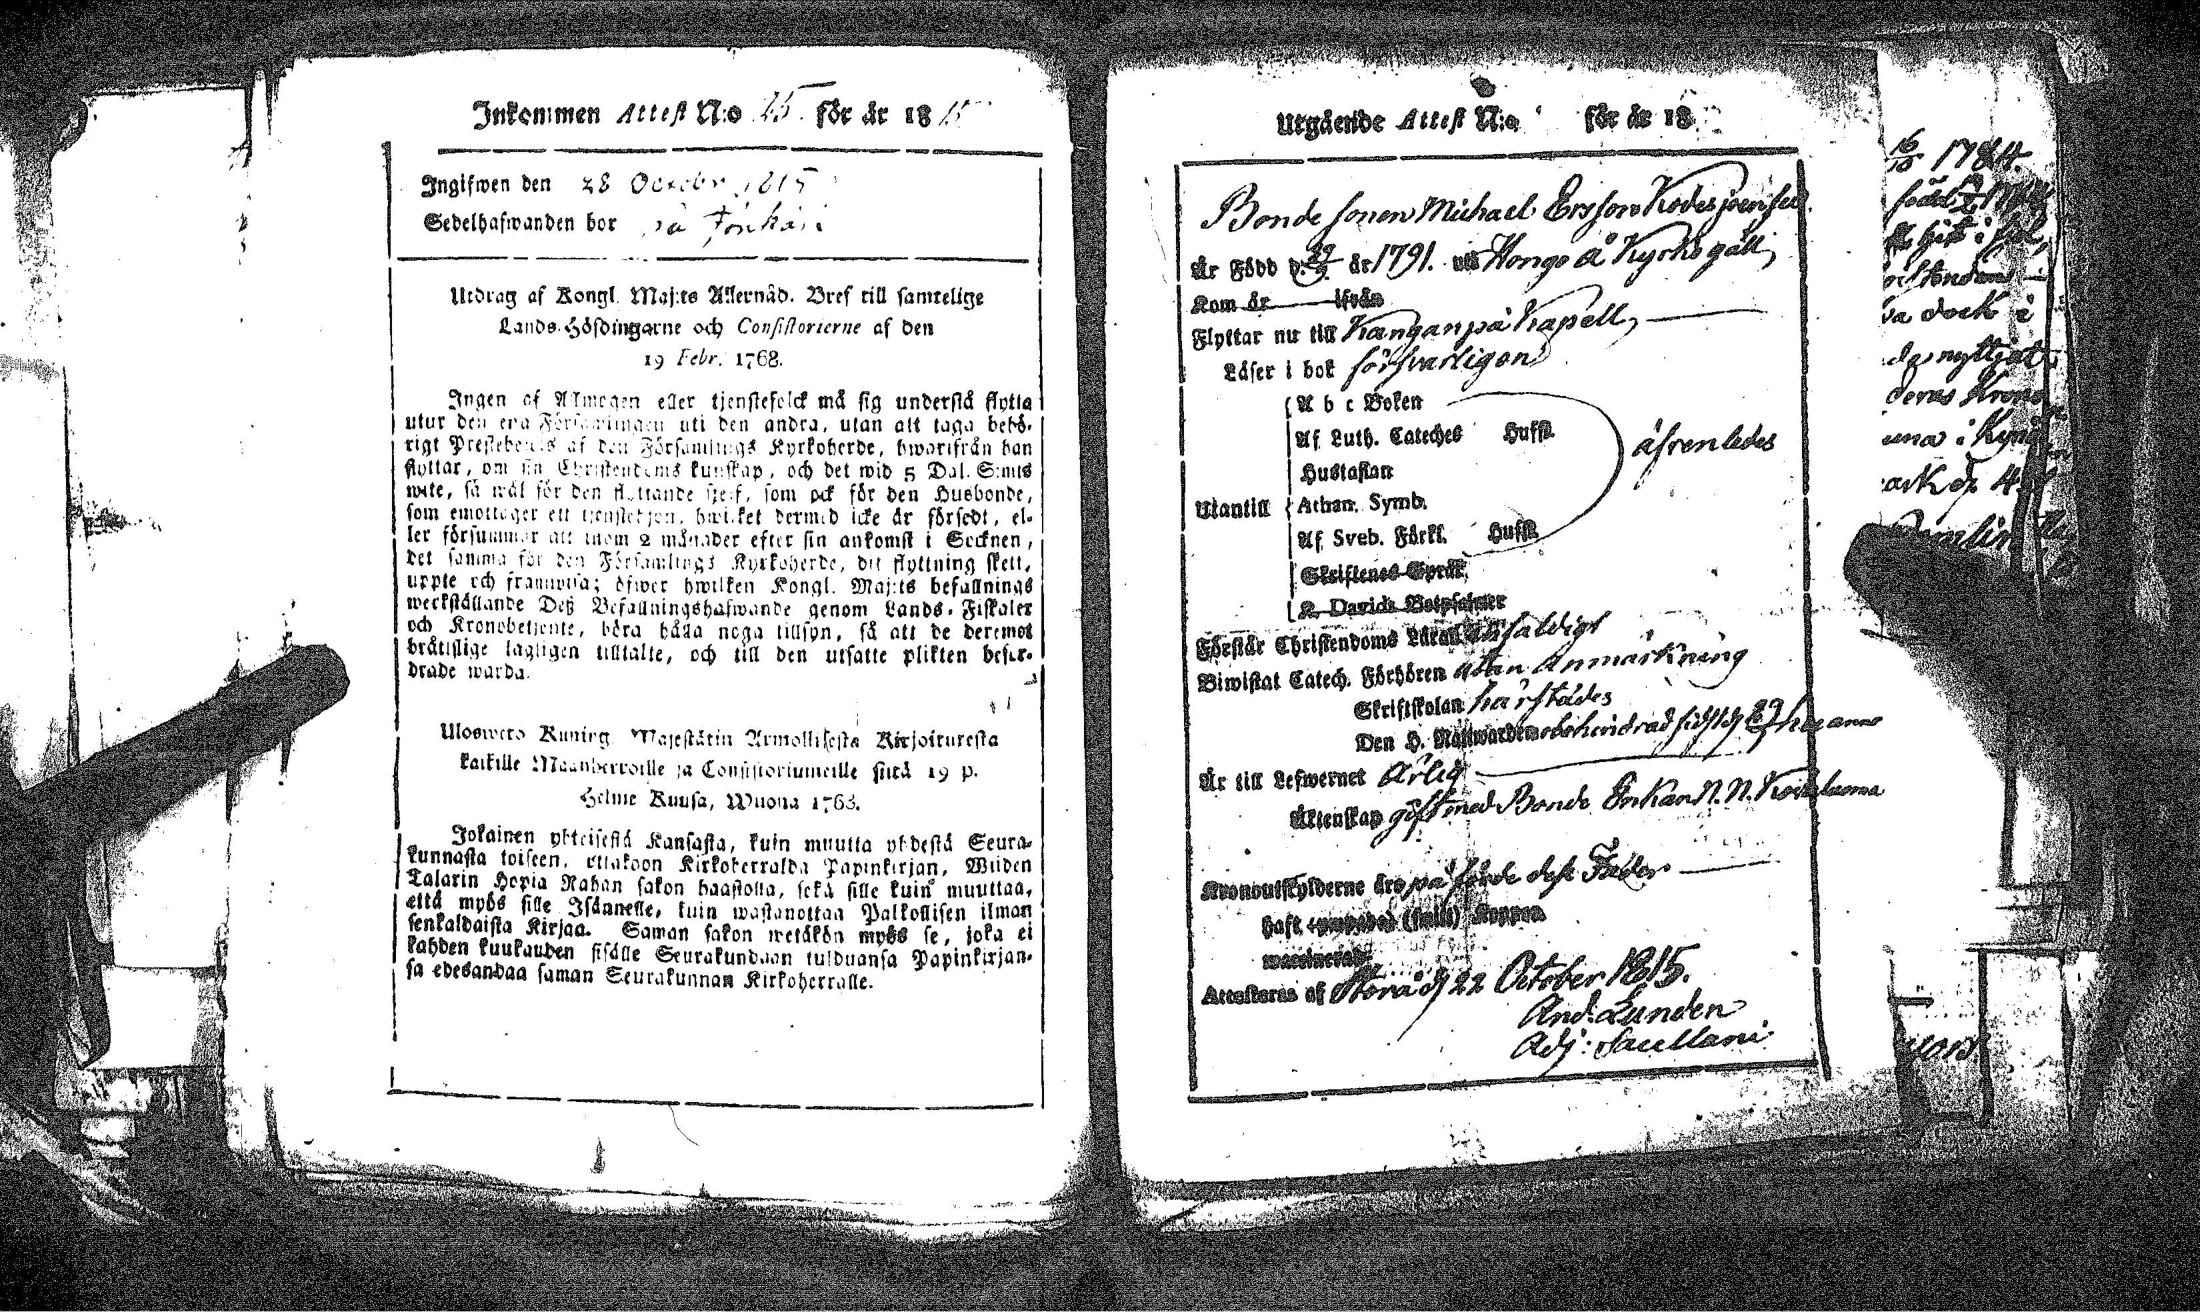 Inkommen Attest N:o 15. för år 1815
Ingifwen den 28 Octobr 1815
Sedelhafwanden bor på
Utdrag af Kongl. Maj:ts Allernåd. Bref till samtelige
Lands-Höfdingarne och Consistorierne af den
19 Febr. 1768.
Ingen af Allmogen eller tjenstefolck må sig understå flytta
utur den ena Församlingen uti den andra, utan att taga behö-
rigt Prestebevis af den Församlings Kyrkoherde, hwarifrån han
flyttar, om sin Christendoms kunskap, och det wid 5 Dal. S:mts
wite, så wäl för den flyttande sjelf, som ock för den Husbonde,
som emottager ett tjenstehjon, hwilket dermed icke är försedt, el-
ler försummar att inom 2 månader efter sin ankomst i Socknen,
det samma för den Församlings Kyrkoherde, dit flyttning skett,
uppte och framwisa; öfwer hwilken Kongl. Maj:ts befallnings
werkställande Deß Befallningshafwande genom Lands-Fiskaler
och Kronobetjente, böra hålla noga tillsyn, så att de deremot
bråttslige lagligen tilltalte, och till den utsatte plikten befor-
drade warda.
Ulosweto Kuning. Majestätin Armollisesta Kirjoituresta
kaikille Maanherroille ja Consistoriumeille siitä 19 p.
Helme Kuusa, Wuona 1768.
Jokainen yhteisestä Kansasta, kuin muutta yhdestä Seura-
kunnasta toiseen, ottakoon Kirkoherralda Papinkirjan, Wiiden
Talarin Hopia Rahan sakon haastolla, sekä sille kuin muuttaa,
että myös sille Isännelle, kuin wastanottaa Palkollisen ilman
senkaldaista Kirjaa. Saman sakon wetäkön myös se, joka ei
kahden kuukauden sisälle Seurakundaan tulduansa Papinkirjan-
sa edesandaa saman Seurakunnan Kirkoherralle.
Utgående Attest N:o för år 18
Bonde sonen Michael Ersson
Är Född d. 29/9 år 1791. uti Hongo å Kyrko gäll,
Kom år ifrån
Flyttar nu till Kanganpä Kapell,
Läser i bok försvarligen
A b c Boken
Af Luth. Cateches Hufst.
Hustaflan
äfvenledes
Utantill Athan. Symb.
Af Sveb. Förkl. Hufst.
Skriftenes Språk
2. Davids Botpsalmer
Förstår Christendoms Läran enfaldigt
Biwistat Catech. Förhören utan Anmärkning
Skriftskolan härstädes
Den H. Nattwarden obehindrad sidst d. hujus anni
Är till Lefwernet Ärlig
Äktenskap gift med Bonde Enkan N. N.
Kronoutskylderne äro på förde dess Fader
haft ympade) (smitt) Koppen
waccinerad
Attesteras af Storå d 22 October 1815.
And: Lunden
Adj: Sacellani
16/10 1784.
född
dock i
nyttjat
deras Krono